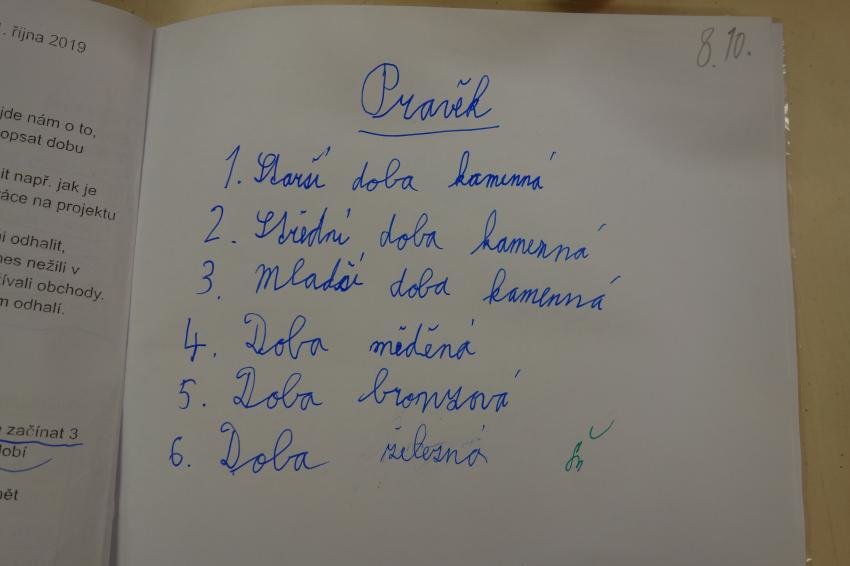 1. října 2019
jde nám o to,
opsat dobu
it např. jak je
áce na projektu
i odhalit,
nes nežili v
ívali obchody.
m odhalí.
začínat 3
obí
ět
8. 10.
Pravěk
1. Starší doba kamenná
2. Střední doba kamenná
3. Mladší doba kamenná
4. Doba měděná
5. Doba bronzová
6. Doba železná